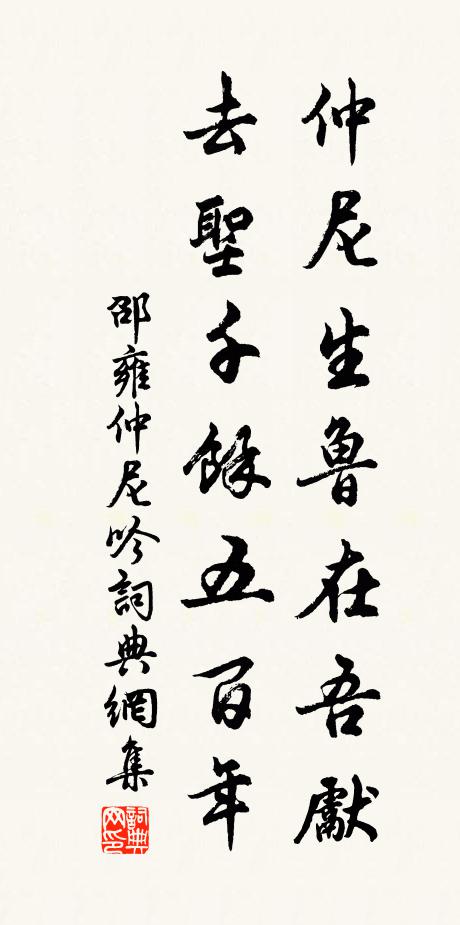 仲尼生魯在吾獻
去聖千餘五百年
邵雍仲尼吟詞典網集
詞典网印